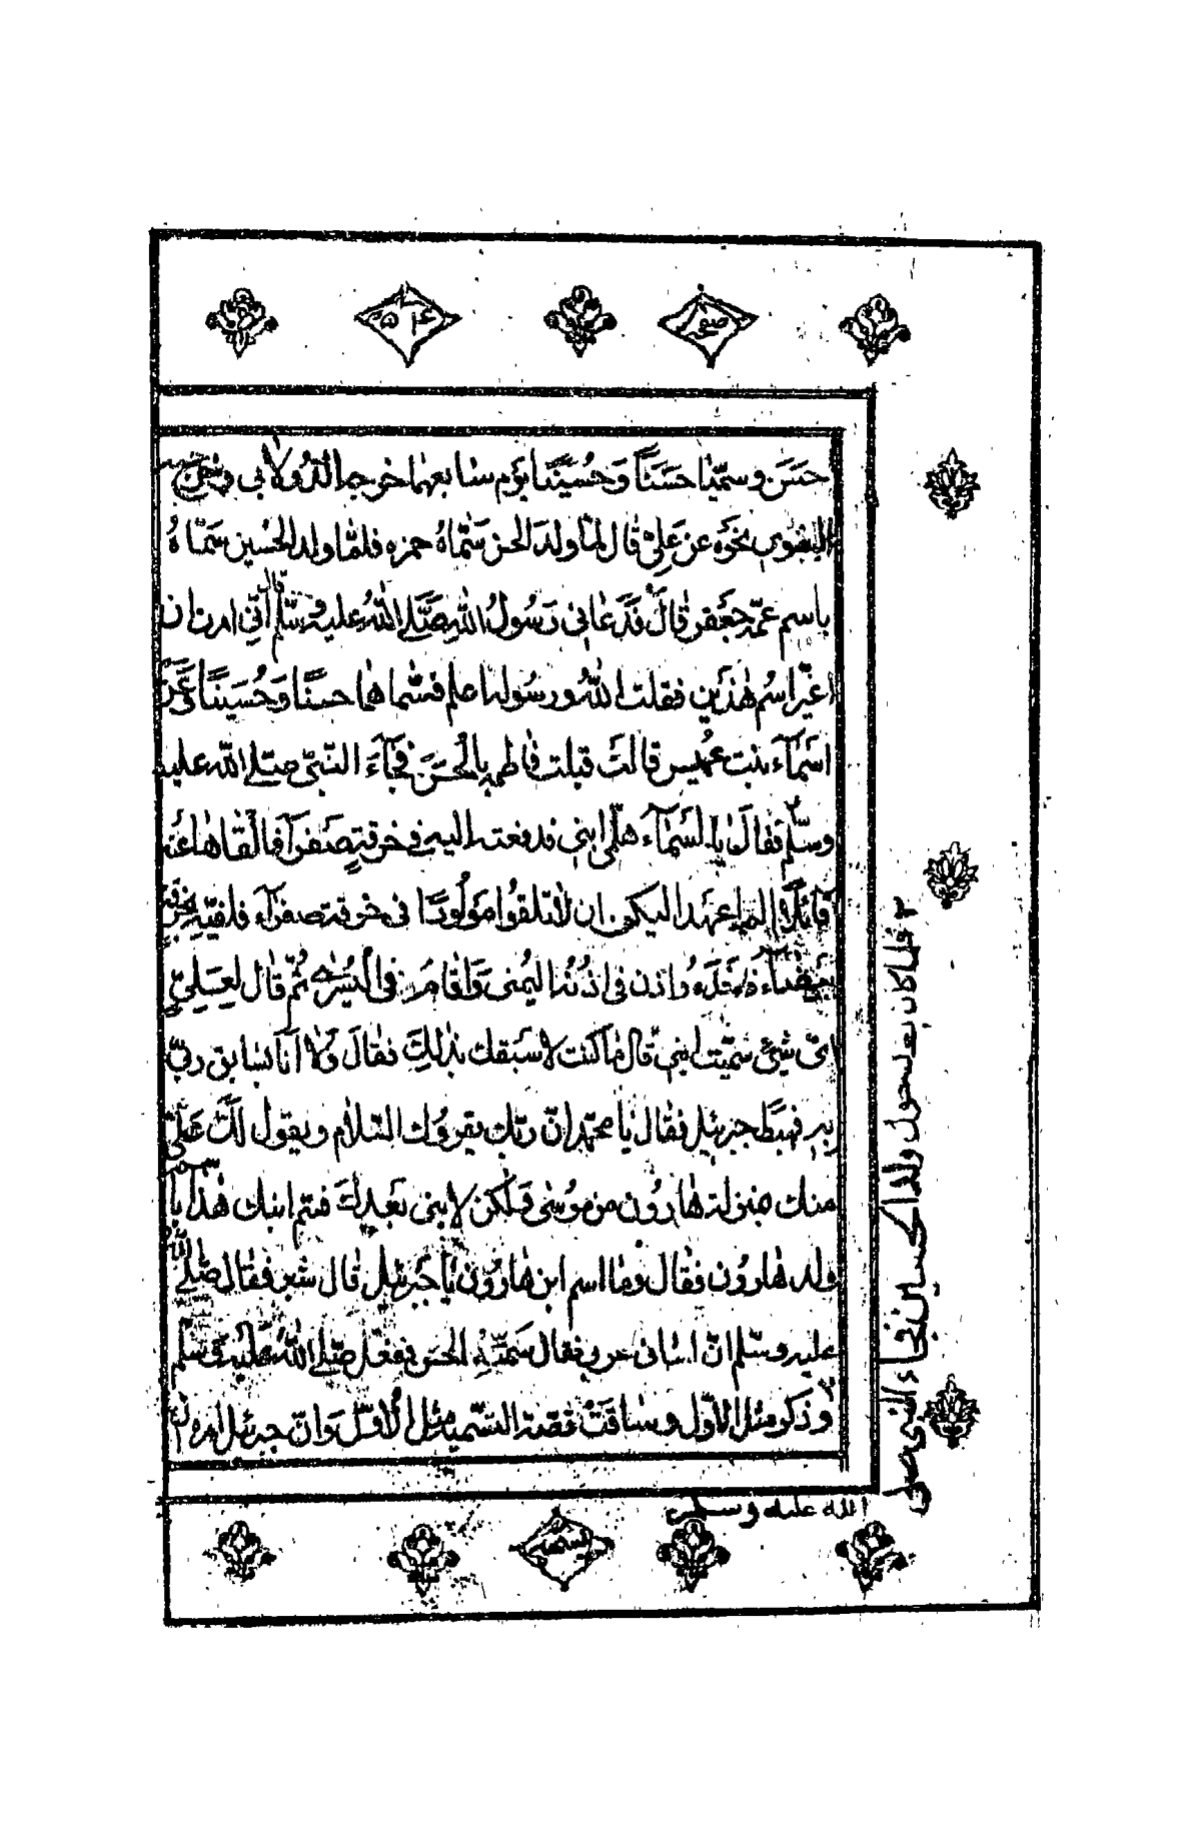 حَسَن وسمّيٰا حَسَنًا وَحُسَيْنًا يَوْم سٰابعهمٰا خرجه الدُّولٰابي وخرج
البغوي نحْوَه عن عَلِيّ قٰال لمّا ولد الحسن سَمّٰاهُ حمزه فلمّا ولد الحُسين سَمّٰاهُ
باسم عمّه جَعْفر قٰالَ فَدَعٰاني رَسُولُ اللّٰهِ صَلَّے اللّٰهُ عليه وسَلّم قال انّي امرت ان
اغيّر اسْم هٰذين فقلت اللّٰهُ ورسُوله اعلم فسمّٰا هُمٰا حسنًا وَحُسَيْنًا وَعَنْ
اسْمَآءَ بنت عميس قالَتْ قبلت فٰاطمه بِالْحَسَن فَجَآءَ النّبيّ صَلّے اللّٰه عليه
وسلّم فقالَ يٰا اسْمَآء هلمّي ابني فدفعته اليه في خرقةٍ صَفْرَآء فالقٰاهٰا عنه
قٰائلًا الم اعهد اليكن ان لٰا تلقوا مَوْلُودًا في خرقة صفرآء فلفيته بخرقة
بيضآء فاخَذَه واذن في اذُنه اليُمنى وَاقٰامَ في اليُسْرٰى ثُمّ قٰال لعَليّ
ايّ شيْئ سَمّيْت ابني قال مٰا كنت لاسَبقك بذٰلِكَ فقٰالَ وَلٰا اَنَا سٰابق ربّي
به فهبَطَ جبرئيل فقٰال يٰا محمّد انّ ربّك يقرؤك السّلام ويقول لَكَ عَلَيّ
منك بمنزلة هٰارُون من مُوسٰى وَلكن لا نبي بَعْدِكَ فسمّ ابنك هٰذا باسم
ولد هٰارُون فقٰال ومٰا اسم ابن هٰارُون يٰا جَبرئيل قٰال شبر فقٰال صَلّے اللّٰه
عليه وسلّم انّ لسٰاني عربي فقال سَمّهِ الحسن ففعل صَلّے اللّٰهُ عَلَيْه وَسَلّم
وذكر مثل الاوّل وسٰاقَتْ قصّة التسميه مثل الاوّل وَانّ جبرئيل امره ان
٢ فلما كان بعد حول ولد الحسين فجاء النبي صلى
الله عليه وسلم